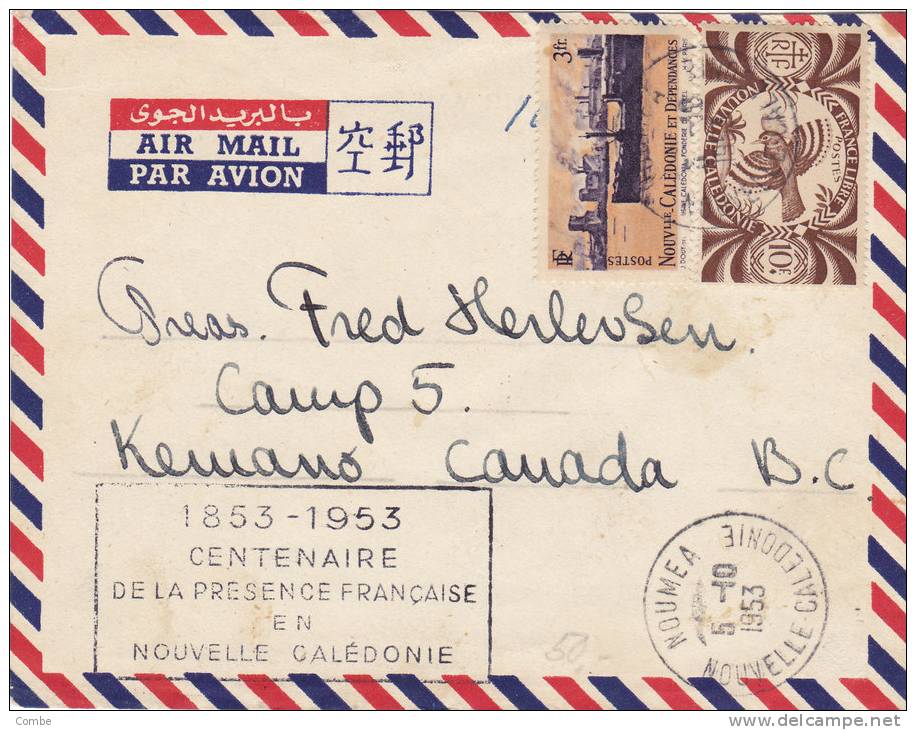 بالبريد الجوى
AIR MAIL
PAR AVION
空郵
3fr.
POSTES
RF
NOUVLLE CALÉDONIE ET DÉPENDANCES
RF
FRANCE LIBRE
POSTES
NOUVELLE CALÉDONIE
10F
Fred Herlevsen.
Camp 5.
Kemano Canada B.C
1853-1953
CENTENAIRE
DE LA PRÉSENCE FRANÇAISE
EN
NOUVELLE CALÉDONIE
NOUMEA
NOUVELLE-CALEDONIE
5-10
1953
50,-
Combe
www.delcampe.net